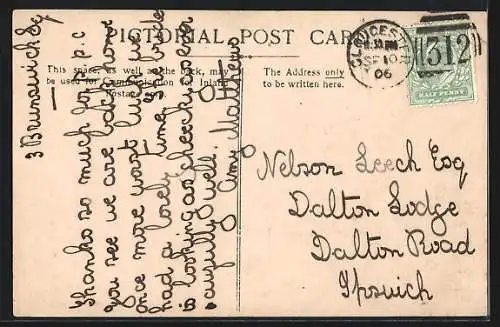 PICTORIAL POST CAR
This space, as well as the back, may
be used for Communication for Inland
Postage only.
The Address only
to be written here.
GLOUCEST
SP 10
06
312
HALF PENNY
3 Brunswick Sq
Thanks so much for p.p.c
you see we are back home
once more worst luck, we
had a lovely time,
is looking as cheeky as ever
awfully well.
Amy Matthews
Nelson Leech Esq
Dalton Lodge
Dalton Road
Ipswich